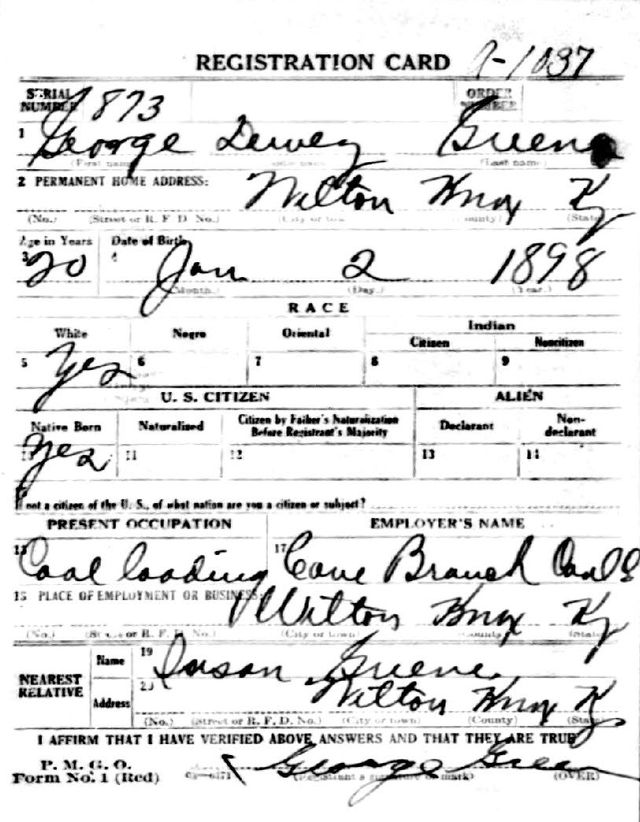 REGISTRATION CARD A-1037
SERIAL NUMBER 1873 ORDER NUMBER
1 George Dewey Greene
(First name) (Last name)
2 PERMANENT HOME ADDRESS: Wilton Knox Ky
(No.) (Street or R. F. D. No.) (City or town) (County) (State)
Age in Years Date of Birth
3 20 4 Jan 2 1898
(Month.) (Day.) (Year.)
RACE
White Negro Oriental Indian
Citizen Noncitizen
5 Yes 6 7 8 9
U. S. CITIZEN ALIEN
Native Born Naturalized Citizen by Father's Naturalization Before Registrant's Majority Declarant Non-declarant
10 Yes 11 12 13 14
If not a citizen of the U. S., of what nation are you a citizen or subject?
PRESENT OCCUPATION EMPLOYER'S NAME
Coal loading 17 Cane Branch Coal
PLACE OF EMPLOYMENT OR BUSINESS:
Wilton Knox Ky
(No.) (Street or R. F. D. No.) (City or town) (County) (State)
NEAREST RELATIVE
Name 19 Susan Greene
Address 20 Wilton Knox Ky
(No.) (Street or R. F. D. No.) (City or town) (County) (State)
I AFFIRM THAT I HAVE VERIFIED ABOVE ANSWERS AND THAT THEY ARE TRUE
P. M. G. O.
Form No. 1 (Red) George Green
(Registrant's signature or mark) (OVER)